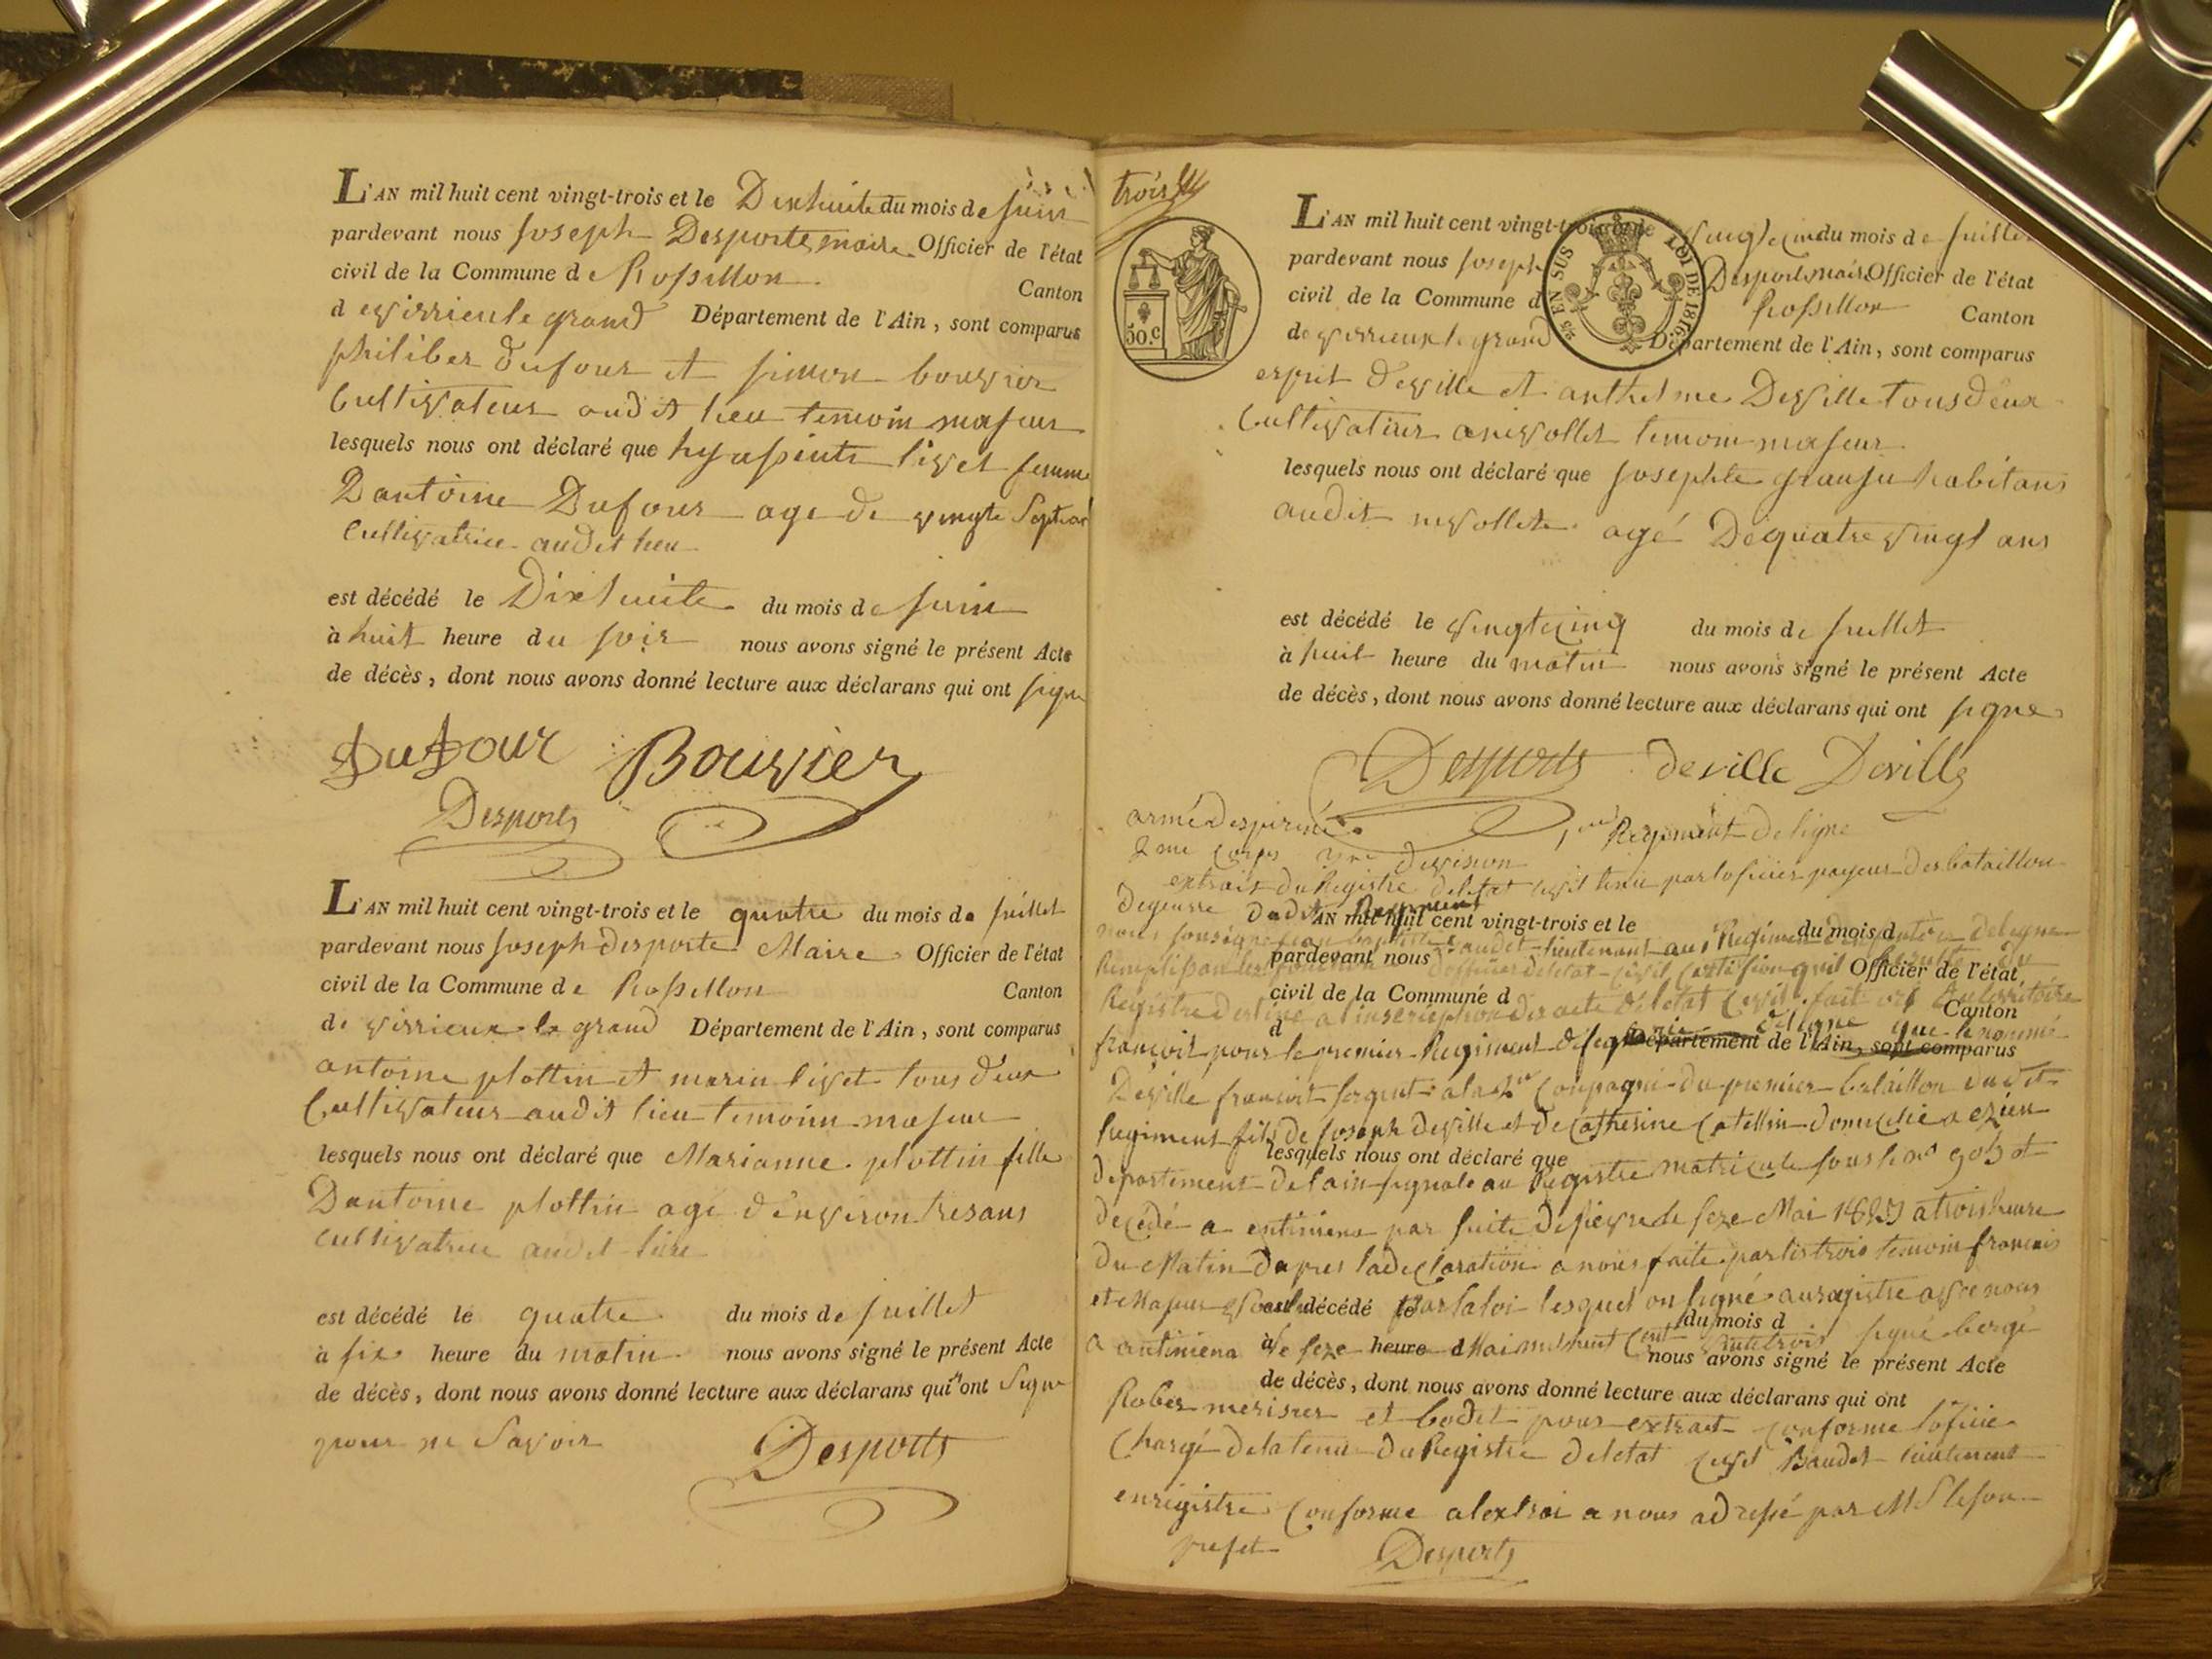 L'AN mil huit cent vingt-trois et le Dixhuite du mois de Juin
pardevant nous Joseph Desporte maire Officier de l'état
civil de la Commune de Rossillon Canton
de virrieu le grand Département de l'Ain, sont comparus
philiber dufour et simon bouvier
Cultivateur audit lieu temoin majeur
lesquels nous ont déclaré que hyassinte livet femme
Dantoine Dufour age de vingte Sept an
Cultivatrice audit lieu
est décédé le Dixhuite du mois de Juin
à huit heure du soir nous avons signé le présent Acte
de décès, dont nous avons donné lecture aux déclarans qui ont signe
Dufour Bouvier
Desports
L'AN mil huit cent vingt-trois et le quatre du mois de juillet
pardevant nous Joseph desporte Maire Officier de l'état
civil de la Commune de Rossillon Canton
de virrieux le grand Département de l'Ain, sont comparus
antoine plottin et marin livet tous deux
Cultivateur audit lieu temoin majeur
lesquels nous ont déclaré que Marianne plottin fille
Dantoine plottin age d'environ
cultivatrice audit lieu
est décédé le quatre du mois de juillet
à six heure du matin nous avons signé le présent Acte
de décès, dont nous avons donné lecture aux déclarans qui ont Signe
pour ne Savoir
Desports
trois
50.c
25 EN SUS LOI DE 1816
L'AN mil huit cent vingt-trois et le vingtecinq du mois de juillet
pardevant nous Joseph Desports maire Officier de l'état
civil de la Commune d Rossillon Canton
de virrieux le grand Département de l'Ain, sont comparus
esprit deville et anthelme Deville tous deux
Cultivateur temoin majeur
lesquels nous ont déclaré que Josephte habitans
audit agé De quatre vingt ans
est décédé le vingtecinq du mois de juillet
à huit heure du matin nous avons signé le présent Acte
de décès, dont nous avons donné lecture aux déclarans qui ont signe
Desports deville Deville
1er Regiment de ligne
2me Corps devision
extrait du Registre deletat civil tenu par loficier payeur des bataillon
degeusse dudit Regiment
L'AN mil huit cent vingt-trois et le du mois d
nous soussigné lieutenant au 1er Regiment de ligne
pardevant nous Officier de l'état
civil de la Commune d Canton
françois pour le premier Regiment de ligne que le nommé
d Département de l'Ain, sont comparus
Deville françois sergent a la Compagnie du premier bataillon dudit
Regiment fils de Joseph deville et de Catherine Catellin domicilié a
lesquels nous ont déclaré que
departement de lain signalé au Registre matricule sous le no
decédé a par suite de fievre le seze Mai 1823 a trois heure
du Matin dapres la declaration a nous faite par les trois temoin francais
et Majeur par la loi lesquel on signé au registre avec nous
est décédé le du mois d
a le seze Mai mil huit Cent vintetrois signé bergé
à heure d nous avons signé le présent Acte
de décès, dont nous avons donné lecture aux déclarans qui ont
Rober et bodet pour extrait conforme loficie
Chargé de la tenu du Registre deletat civil Baudet lieutenent
enregistre Conforme alextrai a nous adressé par Mr le sou
prefet Desports